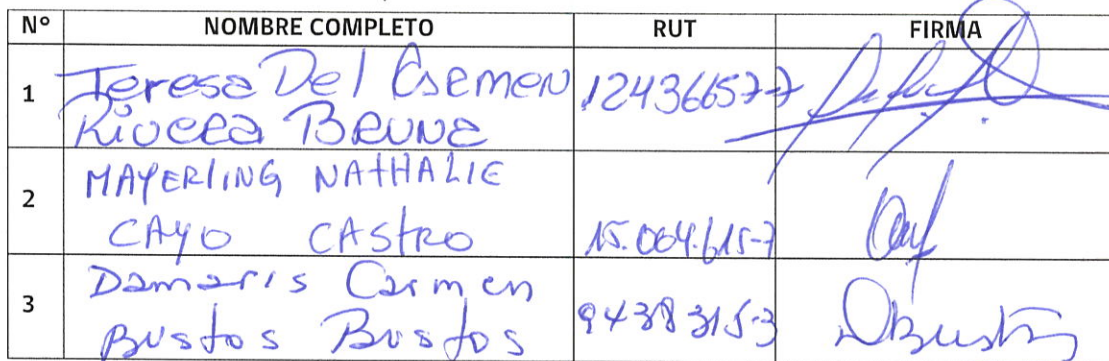 N° NOMBRE COMPLETO RUT FIRMA
1 Teresa Del Carmen 12436657-7
Rivera Bruna
2 MAYERLING NATHALIE
CAYO CASTRO 15.064.615-7
3 Damaris Carmen
Bustos Bustos 9438315-3 DBustos